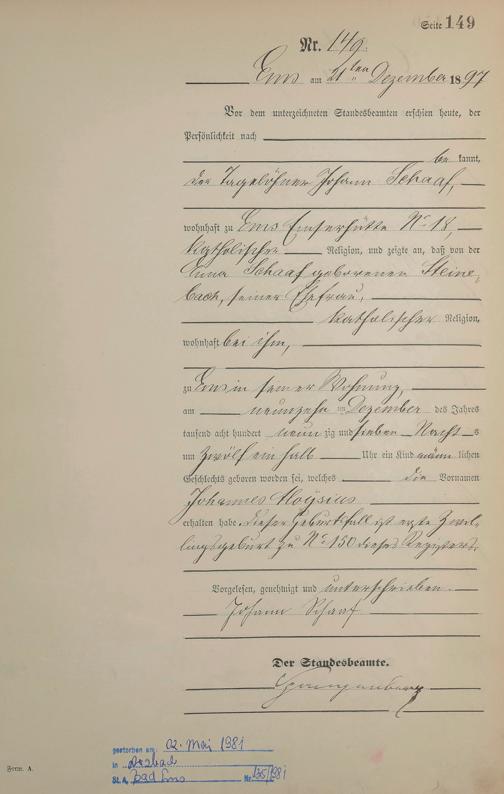 Seite 149
Nr. 149.
Ems am 21ten Dezember 1897
Vor dem unterzeichneten Standesbeamten erschien heute, der
Persönlichkeit nach
be kannt,
der Tagelöhner Johann Schaaf,
wohnhaft zu Ems Emserhütte No 18,
katholischer Religion, und zeigte an, daß von der
Anna Schaaf geborenen Steine-
bach, seiner Ehefrau,
katholischer Religion,
wohnhaft bei ihm,
zu Ems in seiner Wohnung,
am neunzehn ten Dezember des Jahres
tausend acht hundert neun zig und sieben Nacht s
um zwölf ein halb Uhr ein Kind männ lichen
Geschlechts geboren worden sei, welches die Vornamen
Johannes Aloysius
erhalten habe. Dieser Geburtsfall ist erste Zwil-
lingsgeburt zu No 150 dieses Registers.
Vorgelesen, genehmigt und unterschrieben.
Johann Schaaf
Der Standesbeamte.
gestorben am: 02. Mai 1981
in Arzbach
St.A. Bad Ems Nr. 135/1981
Form. A.